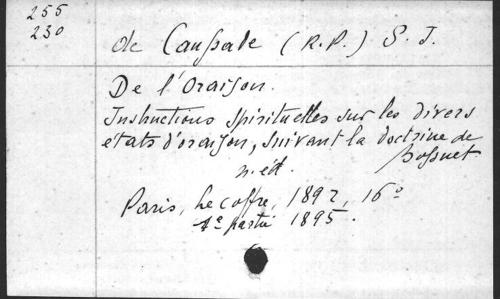 255
230
de Caussade (R.P.) S. J.
De l'Oraison.
Instructions spirituelles sur les divers
états d'oraison, suivant la doctrine de
Bossuet
n. éd.
Paris, Lecoffre, 1892, 16°
1e partie 1895.